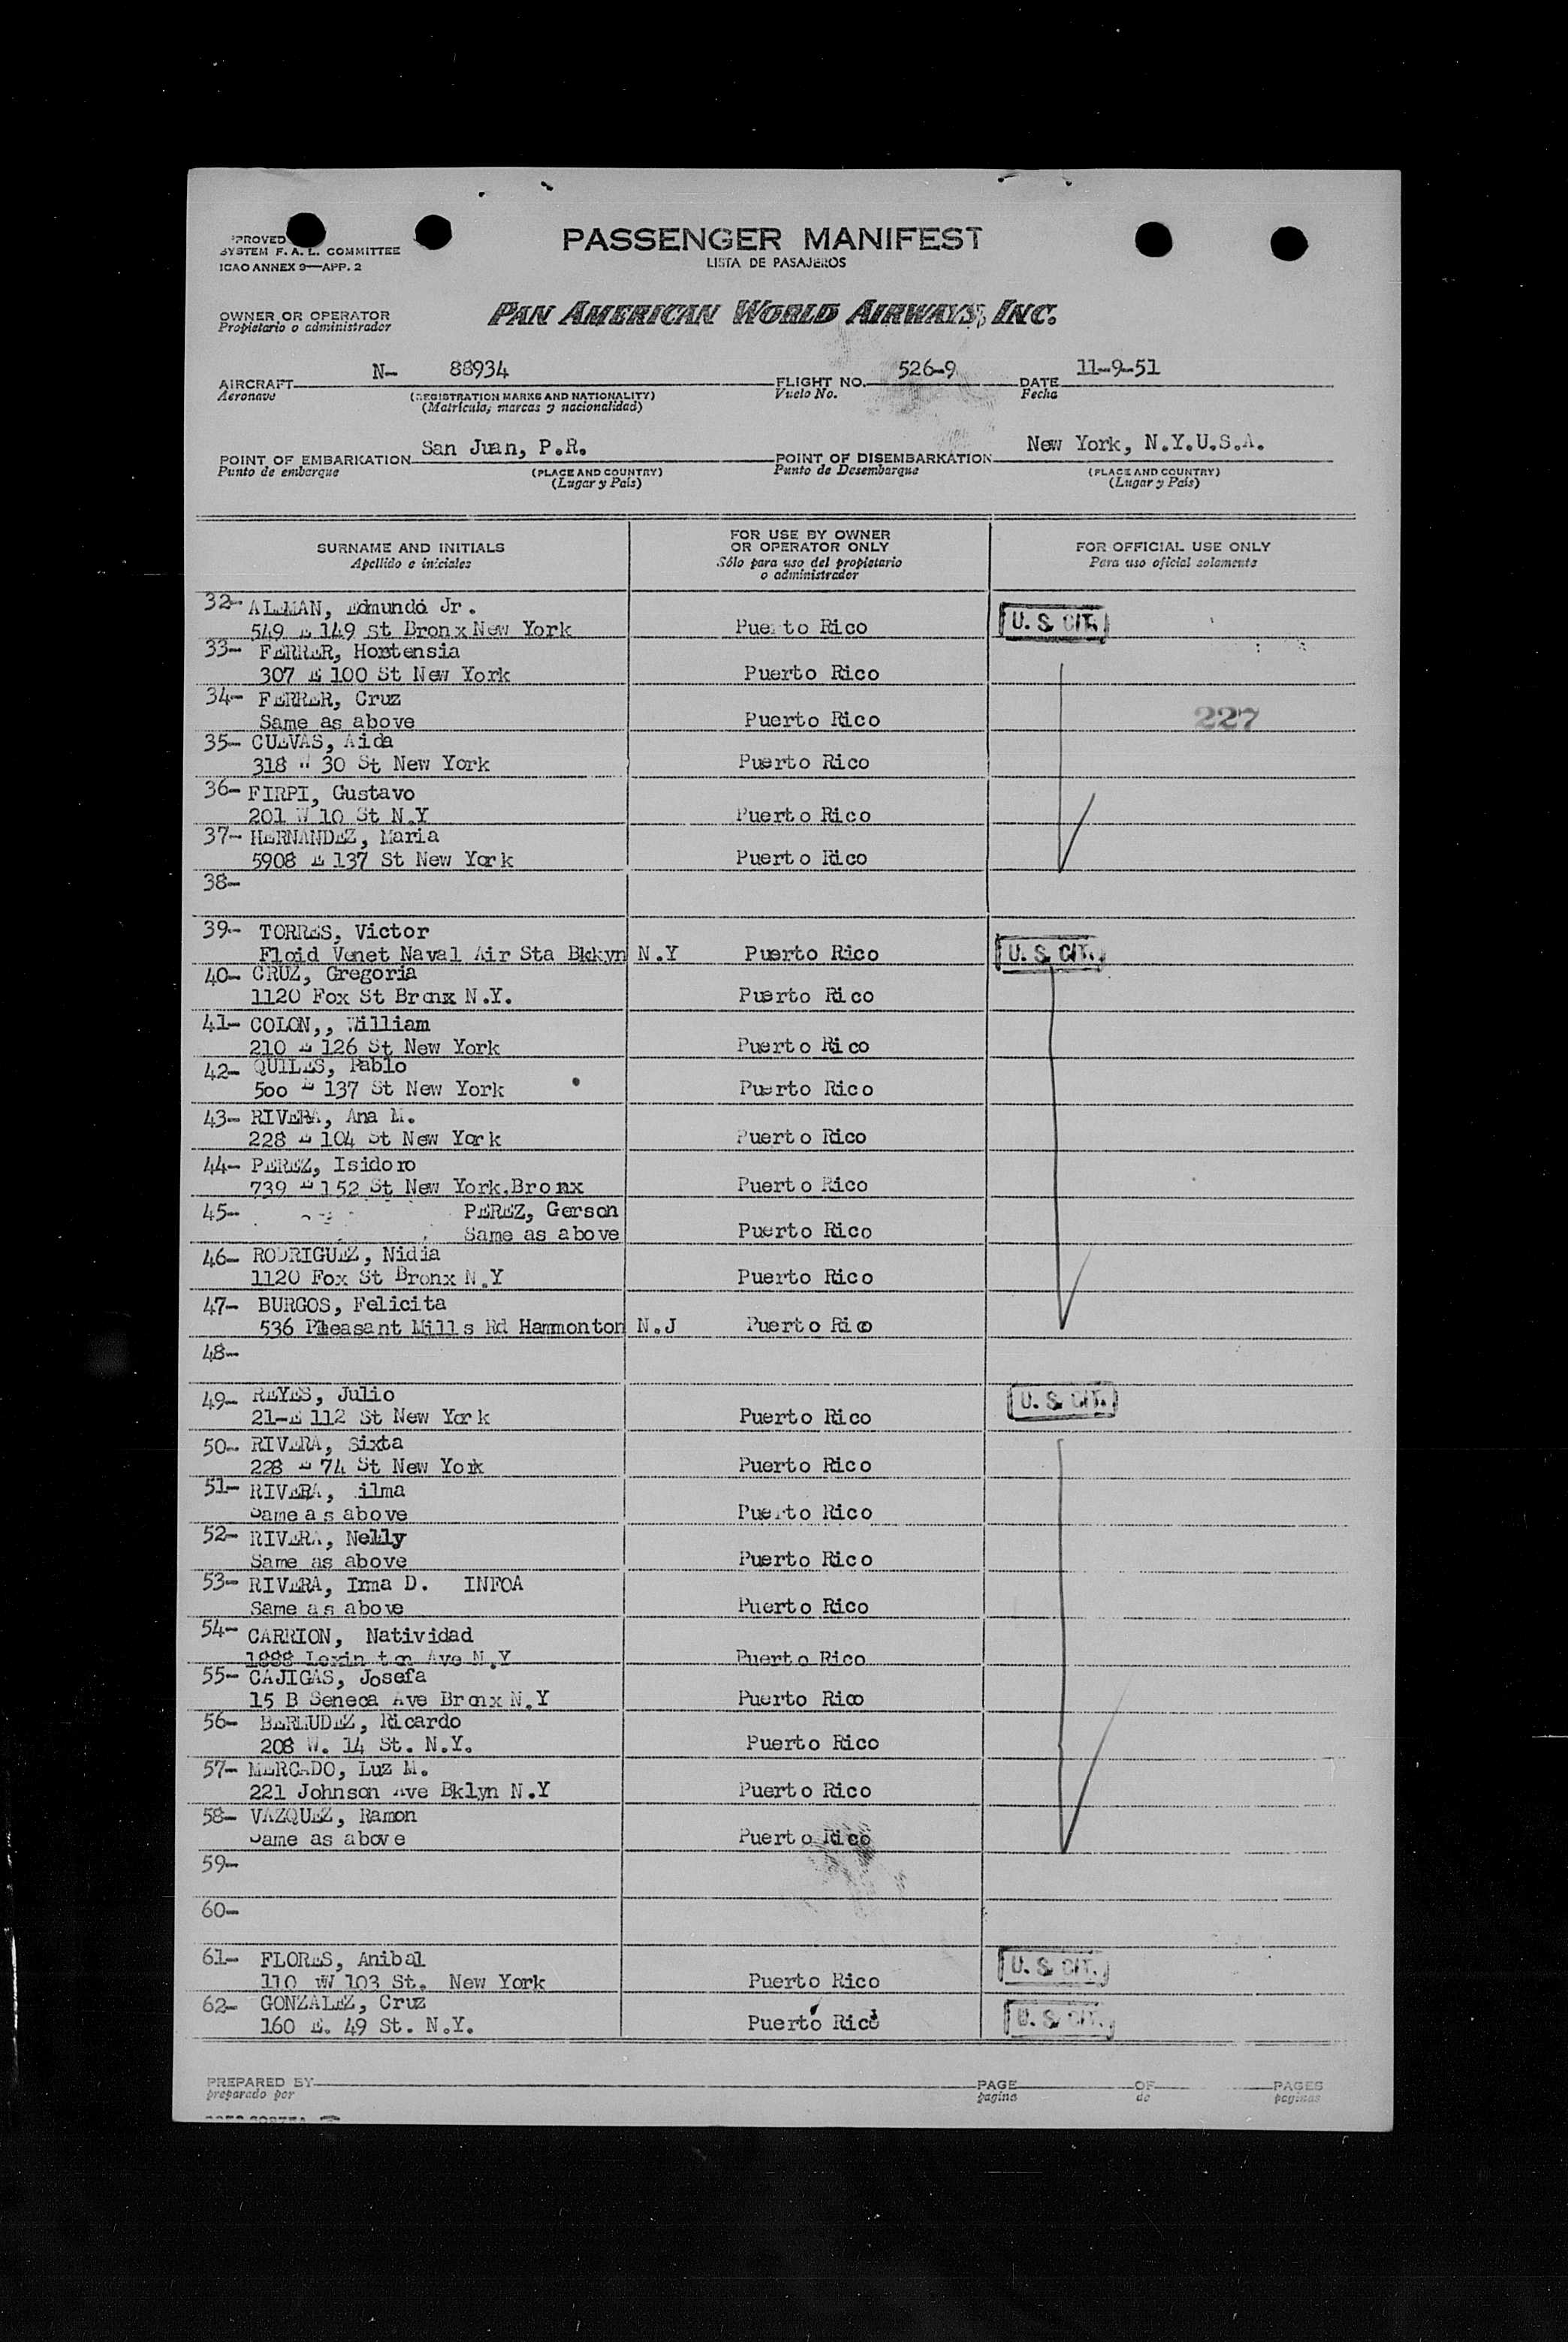 PROVED
SYSTEM F. A. L. COMMITTEE
ICAO ANNEX 9—APP. 2
PASSENGER MANIFEST
LISTA DE PASAJEROS
OWNER OR OPERATOR
Propietario o administrador
PAN AMERICAN WORLD AIRWAYS, INC.
AIRCRAFT N- 88934 FLIGHT NO. 526-9 DATE 11-9-51
Aeronave (REGISTRATION MARKS AND NATIONALITY) Vuelo No. Fecha
(Matrícula, marcas y nacionalidad)
POINT OF EMBARKATION San Juan, P.R. POINT OF DISEMBARKATION New York, N.Y.U.S.A.
Punto de embarque (PLACE AND COUNTRY) Punto de Desembarque (PLACE AND COUNTRY)
(Lugar y País) (Lugar y País)
SURNAME AND INITIALS FOR USE BY OWNER OR OPERATOR ONLY FOR OFFICIAL USE ONLY
Apellido e iniciales Sólo para uso del propietario o administrador Para uso oficial solamente
32- ALEMAN, Edmundo Jr.
549 E 149 St Bronx New York Puerto Rico U. S. CIT.
33- FERRER, Hortensia
307 E 100 St New York Puerto Rico
34- FERRER, Cruz
Same as above Puerto Rico 227
35- CUEVAS, Aida
318 W 30 St New York Puerto Rico
36- FIRPI, Gustavo
201 W 10 St N.Y Puerto Rico
37- HERNANDEZ, Maria
5908 E 137 St New York Puerto Rico
38-
39- TORRES, Victor
Floid Venet Naval Air Sta Bkkyn N.Y Puerto Rico U. S. CIT.
40- CRUZ, Gregoria
1120 Fox St Bronx N.Y. Puerto Rico
41- COLON,, William
210 E 126 St New York Puerto Rico
42- QUILES, Pablo
500 E 137 St New York Puerto Rico
43- RIVERA, Ana M.
228 E 104 St New York Puerto Rico
44- PEREZ, Isidoro
739 E 152 St New York.Bronx Puerto Rico
45- PEREZ, Gerson
Same as above Puerto Rico
46- RODRIGUEZ, Nidia
1120 Fox St Bronx N.Y Puerto Rico
47- BURGOS, Felicita
536 Pleasant Mills Rd Hammonton N.J Puerto Rico
48-
49- REYES, Julio
21-E 112 St New York Puerto Rico U. S. CIT.
50- RIVERA, Sixta
228 E 74 St New York Puerto Rico
51- RIVERA, ilma
Same as above Puerto Rico
52- RIVERA, Nelly
Same as above Puerto Rico
53- RIVERA, Irma D. INFOA
Same as above Puerto Rico
54- CARRION, Natividad
1888 Lexin ton Ave N.Y Puerto Rico
55- CAJIGAS, Josefa
15 B Seneca Ave Bronx N.Y Puerto Rico
56- BERMUDEZ, Ricardo
208 W. 14 St. N.Y. Puerto Rico
57- MERCADO, Luz M.
221 Johnson Ave Bklyn N.Y Puerto Rico
58- VAZQUEZ, Ramon
Same as above Puerto Rico
59-
60-
61- FLORES, Anibal
110 W 103 St. New York Puerto Rico U. S. CIT.
62- GONZALEZ, Cruz
160 E. 49 St. N.Y. Puerto Rico U. S. CIT.
PREPARED BY PAGE OF PAGES
preparado por pagina de paginas